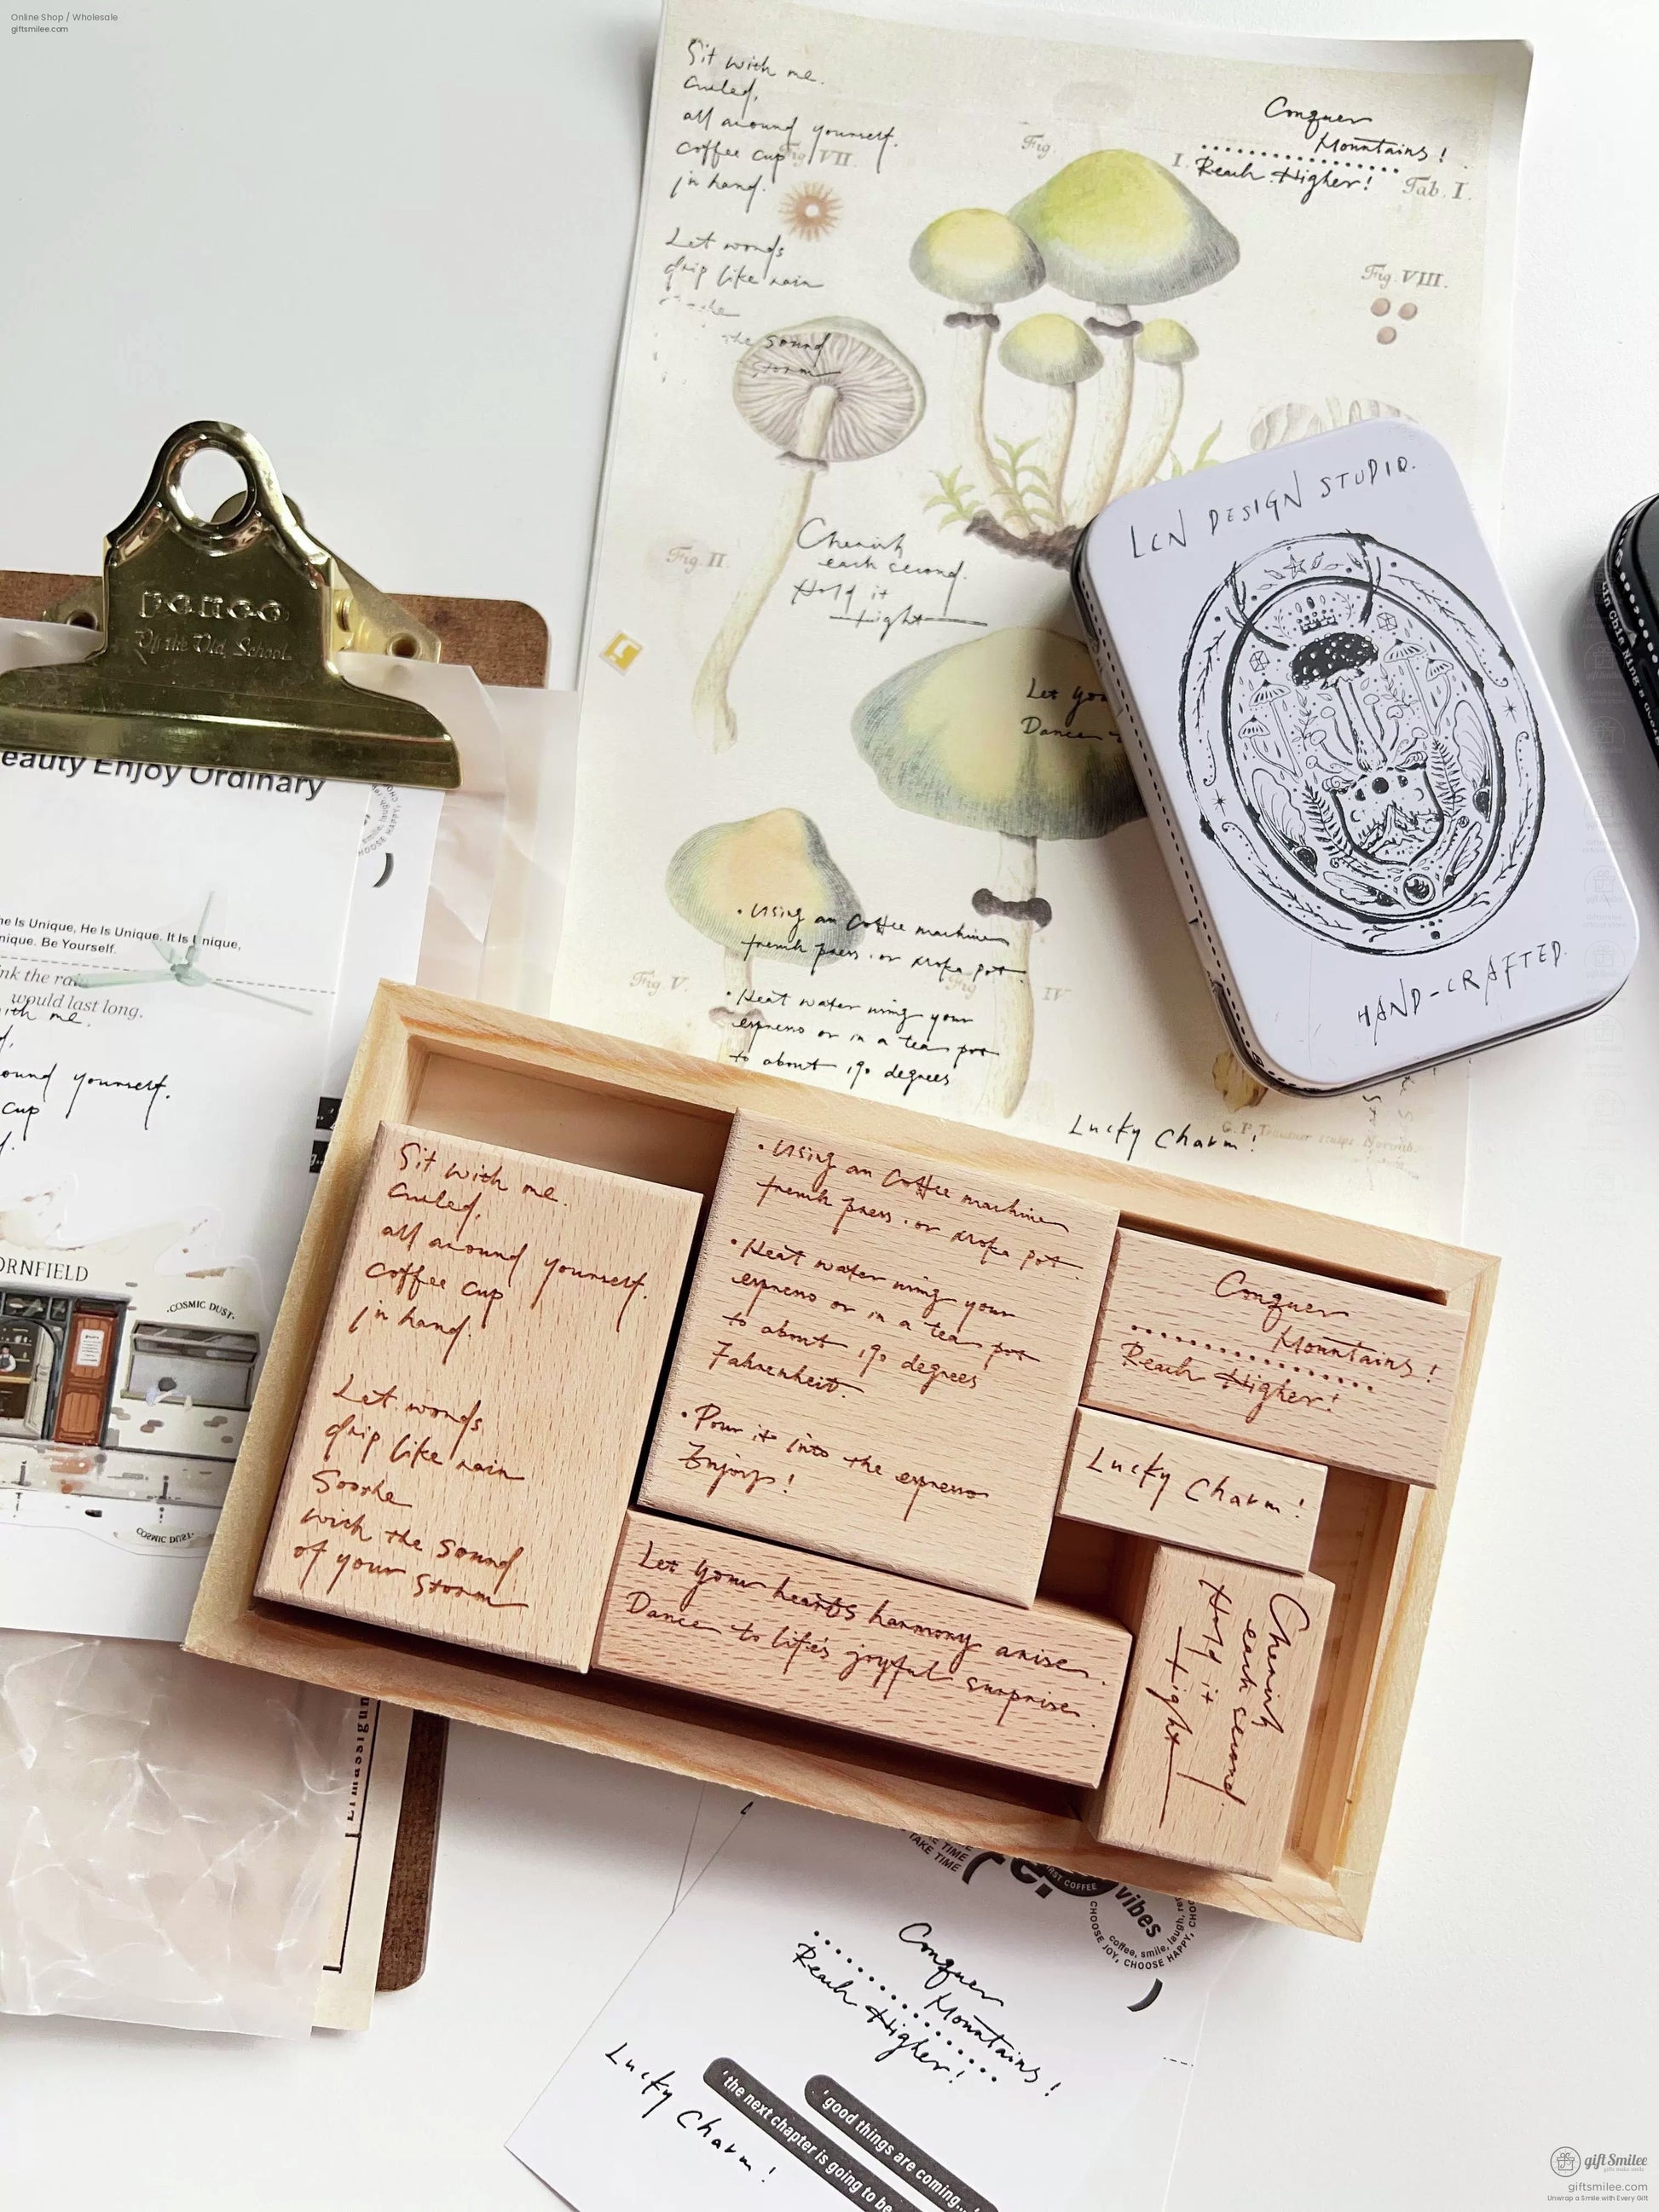 Online Shop / Wholesale
giftsmilee.com
Sit with me.
Curled,
all around yourself.
coffee cup
in hand.
Let words
drip like rain
the sound
storm
Conquer
Mountains!
Reach Higher!
Fig. VII.
Fig.
I.
Tab. I.
Fig. VIII.
Fig. II.
Cherish
each second.
Hold it
tight
Let you
Dance
Fig. V.
Fig
IV
• Using an Coffee machine
french press, or moka pot.
• Heat water using your
espresso or in a tea pot
to about 190 degrees
Lucky Charm!
LCN DESIGN STUDIO.
HAND-CRAFTED.
penco
Of the Old School
eauty Enjoy Ordinary
he Is Unique, He Is Unique. It Is Unique,
nique. Be Yourself.
nk the rain
would last long.
ith me.
ound yourself.
cup
ORNFIELD
·COSMIC DUST·
COSMIC DUST·
Sit with me.
Curled,
all around yourself.
coffee cup
in hand.
Let words
drip like rain
Soothe
with the sound
of your storm
• Using an Coffee machine
french press, or moka pot.
• Heat water using your
espresso or in a tea pot
to about 190 degrees
Fahrenheit.
• Pour it into the espresso
Enjoys!
Conquer
Mountains!
Reach Higher!
Lucky Charm!
Let your hearts harmony arise.
Dance to life's joyful surprise.
Cherish
each second.
Hold it
tight
TAKE TIME
FIRST COFFEE
vibes
coffee, smile, laugh, re
CHOOSE JOY, CHOOSE HAPPY, CHO
Conquer
Mountains!
Reach Higher!
Lucky Charm!
'good things are coming...'
'the next chapter is going to be
gift Smilee
giftsmilee.com
Unwrap a Smile with Every Gift